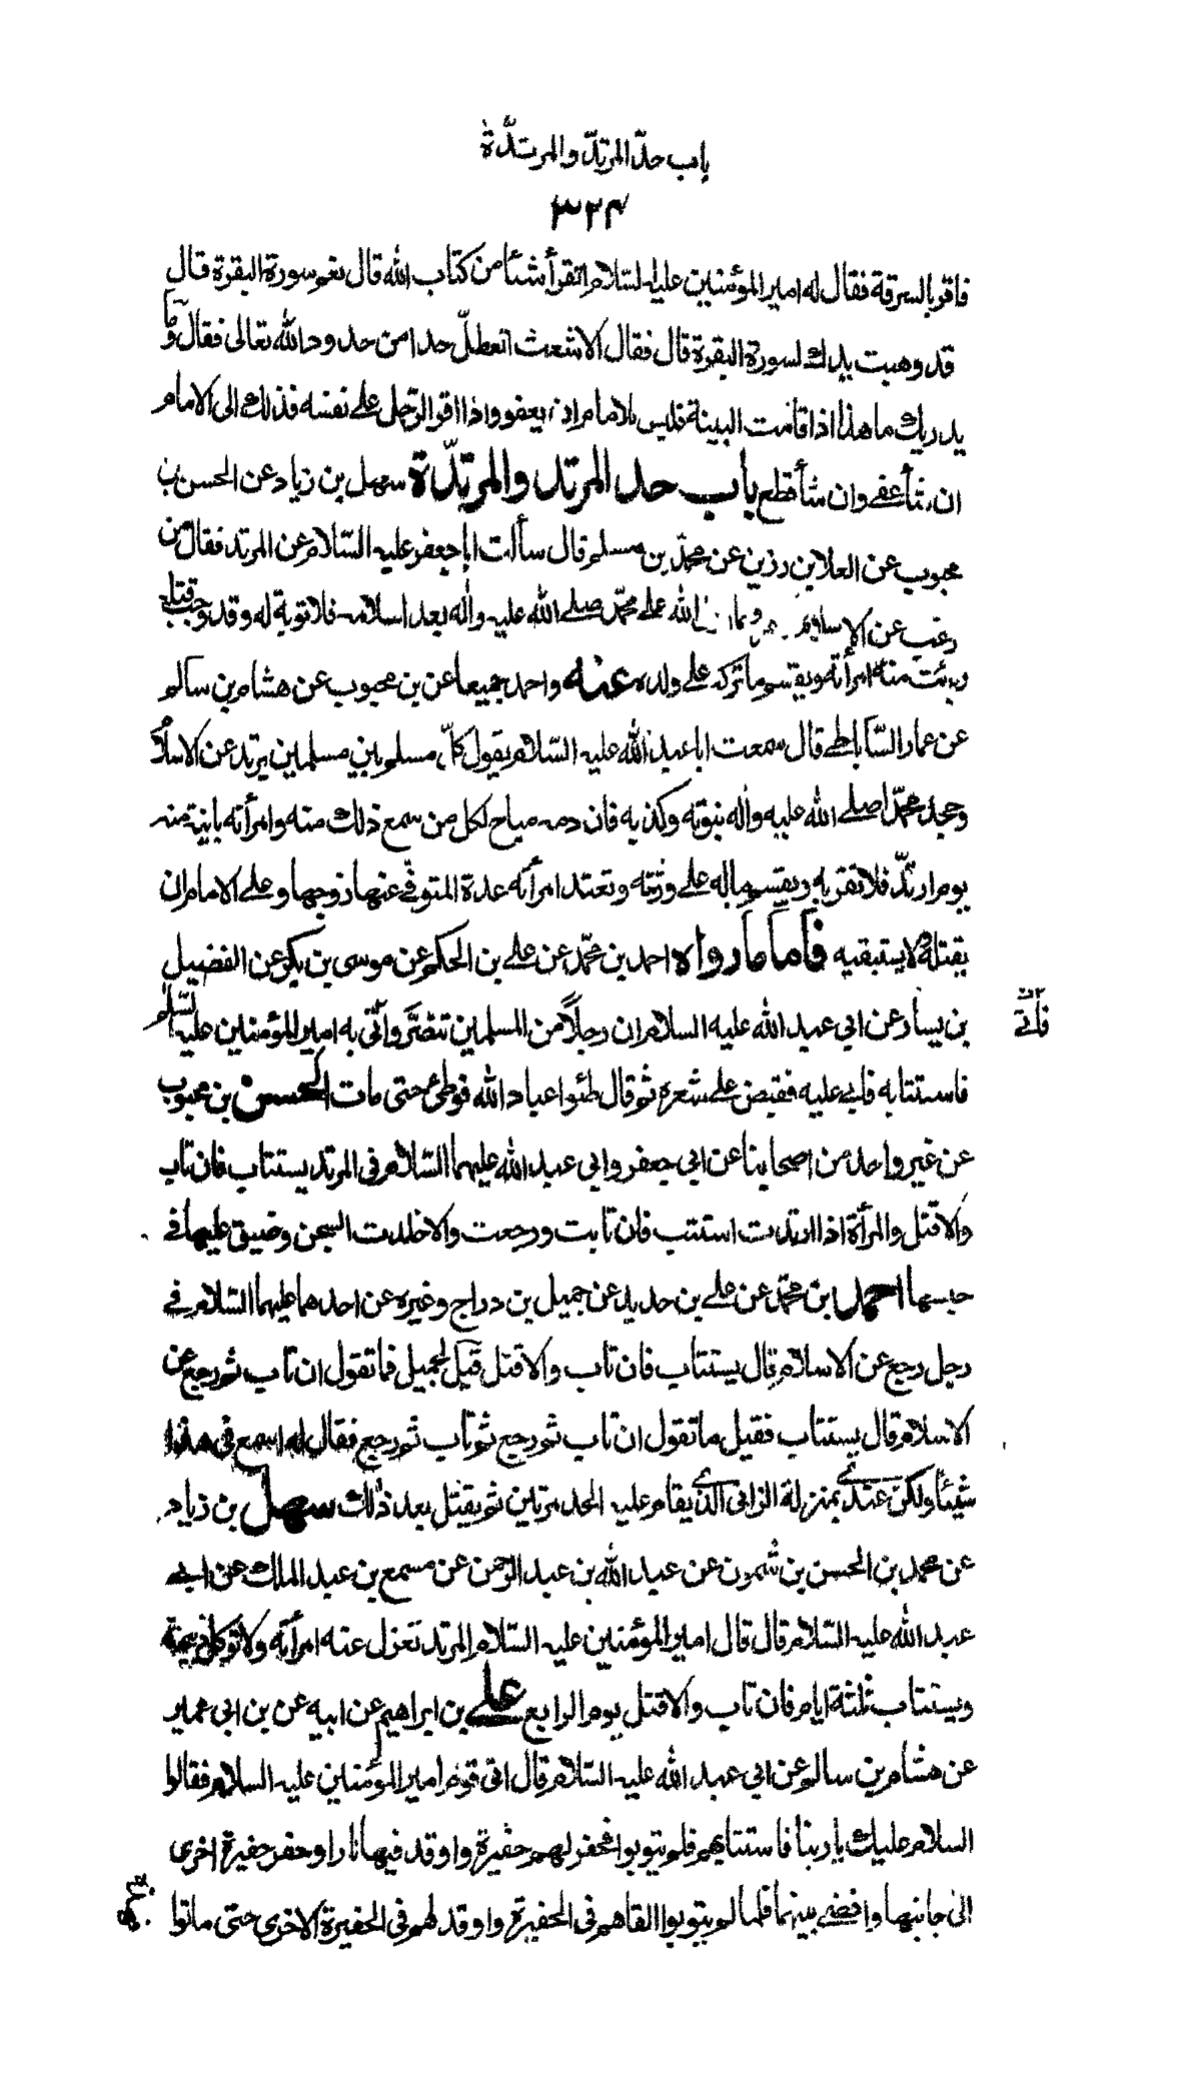 باب حدّ المرتدّ والمرتدّة
٣٢٤
فاقر بالسرقة فقال له امير المؤمنين عليه السّلام اتقرأ شئا من كتاب الله قال نعم سورة البقرة قال
قد وهبت يدك لسورة البقرة قال فقال الاشعث اتعطلّ حدا من حدود الله تعالى فقال وما
يدريك ما هذا اذا قامت البينة فليس للامام ان يعفو واذا اقر الرّجل على نفسه فذلك الى الامام
ان شأ عفى وان شأ قطع باب حد المرتد والمرتدّة سهل بن زياد عن الحسن بن
محبوب عن العلا بن رزين عن محمّد بن مسلم قال سألت ابا جعفر عليه السّلام عن المرتد فقال من
رغب عن الإسلام الله على محمّد صلى الله عليه واله بعد اسلامه فلا توبة له وقد وجب قتله
وبئت منه امرأته ويقسم ما ترك على ولده عنه واحمد جميعا عن بن محبوب عن هشام بن سالم
عن عمار السّاباطى قال سمعت ابا عبد الله عليه السّلام يقول كلّ مسلم بين مسلمين يرتد عن الاسلام
وجحد محمّدا صلى الله عليه واله نبوته وكذبه فان دمه مباح لكل من سمع ذلك منه وامرأته باينة منه
يوم ارتدّ فلا تقربه ويقسم ماله على ورثته وتعتد امرأته عدة المتوفى عنها زوجها وعلى الامام ان
يقتله ولا يستبقيه فأما ما رواه احمد بن محمّد عن على بن الحكم عن موسى بن بكر عن الفضيل
بن يسار عن ابي عبد الله عليه السلام ان رجلًا من المسلمين تنصّر واتى به امير المؤمنين عليه السّلم
فاستتابه فابى عليه فقبض على شعره ثم قال طئوا عباد الله فوطئ حتى مات الحسن بن محبوب
عن غير واحد من اصحابنا عن ابي جعفر وابي عبد الله عليهما السّلام في المرتد يستتاب فان تاب
والا قتل والمرأة اذا ارتدت استتب فان تابت ورجعت والا خلدت السجن وضيق عليها في
حبسها احمد ابن محمّد عن على بن حديد عن جميل بن دراج وغيره عن احدهما عليهما السّلام في
رجل رجع عن الاسلام قال يستتاب فان تاب والا قتل قيل لجميل فما تقول ان تاب ثم رجع عن
الاسلام قال يستتاب فقيل ما تقول ان تاب ثم رجع ثم تاب ثم رجع فقال لم اسمع في هذا
شيئًا ولكن عندي بمنزلة الزاني الذي يقام عليه الحد مرتين ثم يقتل بعد ذلك سهل بن زياد
عن محمد بن الحسن بن شمون عن عبد الله بن عبد الرّحمن عن مسمع بن عبد الملك عن ابى
عبد الله عليه السّلام قال قال امير المؤمنين عليه السّلام المرتد تعزل عنه امرأته ولا تؤكل ذبيحته
ويستتاب ثلثة ايام فان تاب والا قتل يوم الرابع على بن ابراهيم عن ابيه عن بن ابى عمير
عن هشام بن سالم عن ابي عبد الله عليه السّلام قال اتى قوم امير المؤمنين عليه السلام فقالوا
السلام عليك يا ربنا فاستتابهم فلم يتوبوا فحفر لهم حفيرة واوقد فيها نارا وحفر حفيرة اخرى
الى جانبها وافضى بينهما فلما لم يتوبوا القاهم في الحفيرة واوقد لهم في الحفيرة الاخرى حتى ماتوا